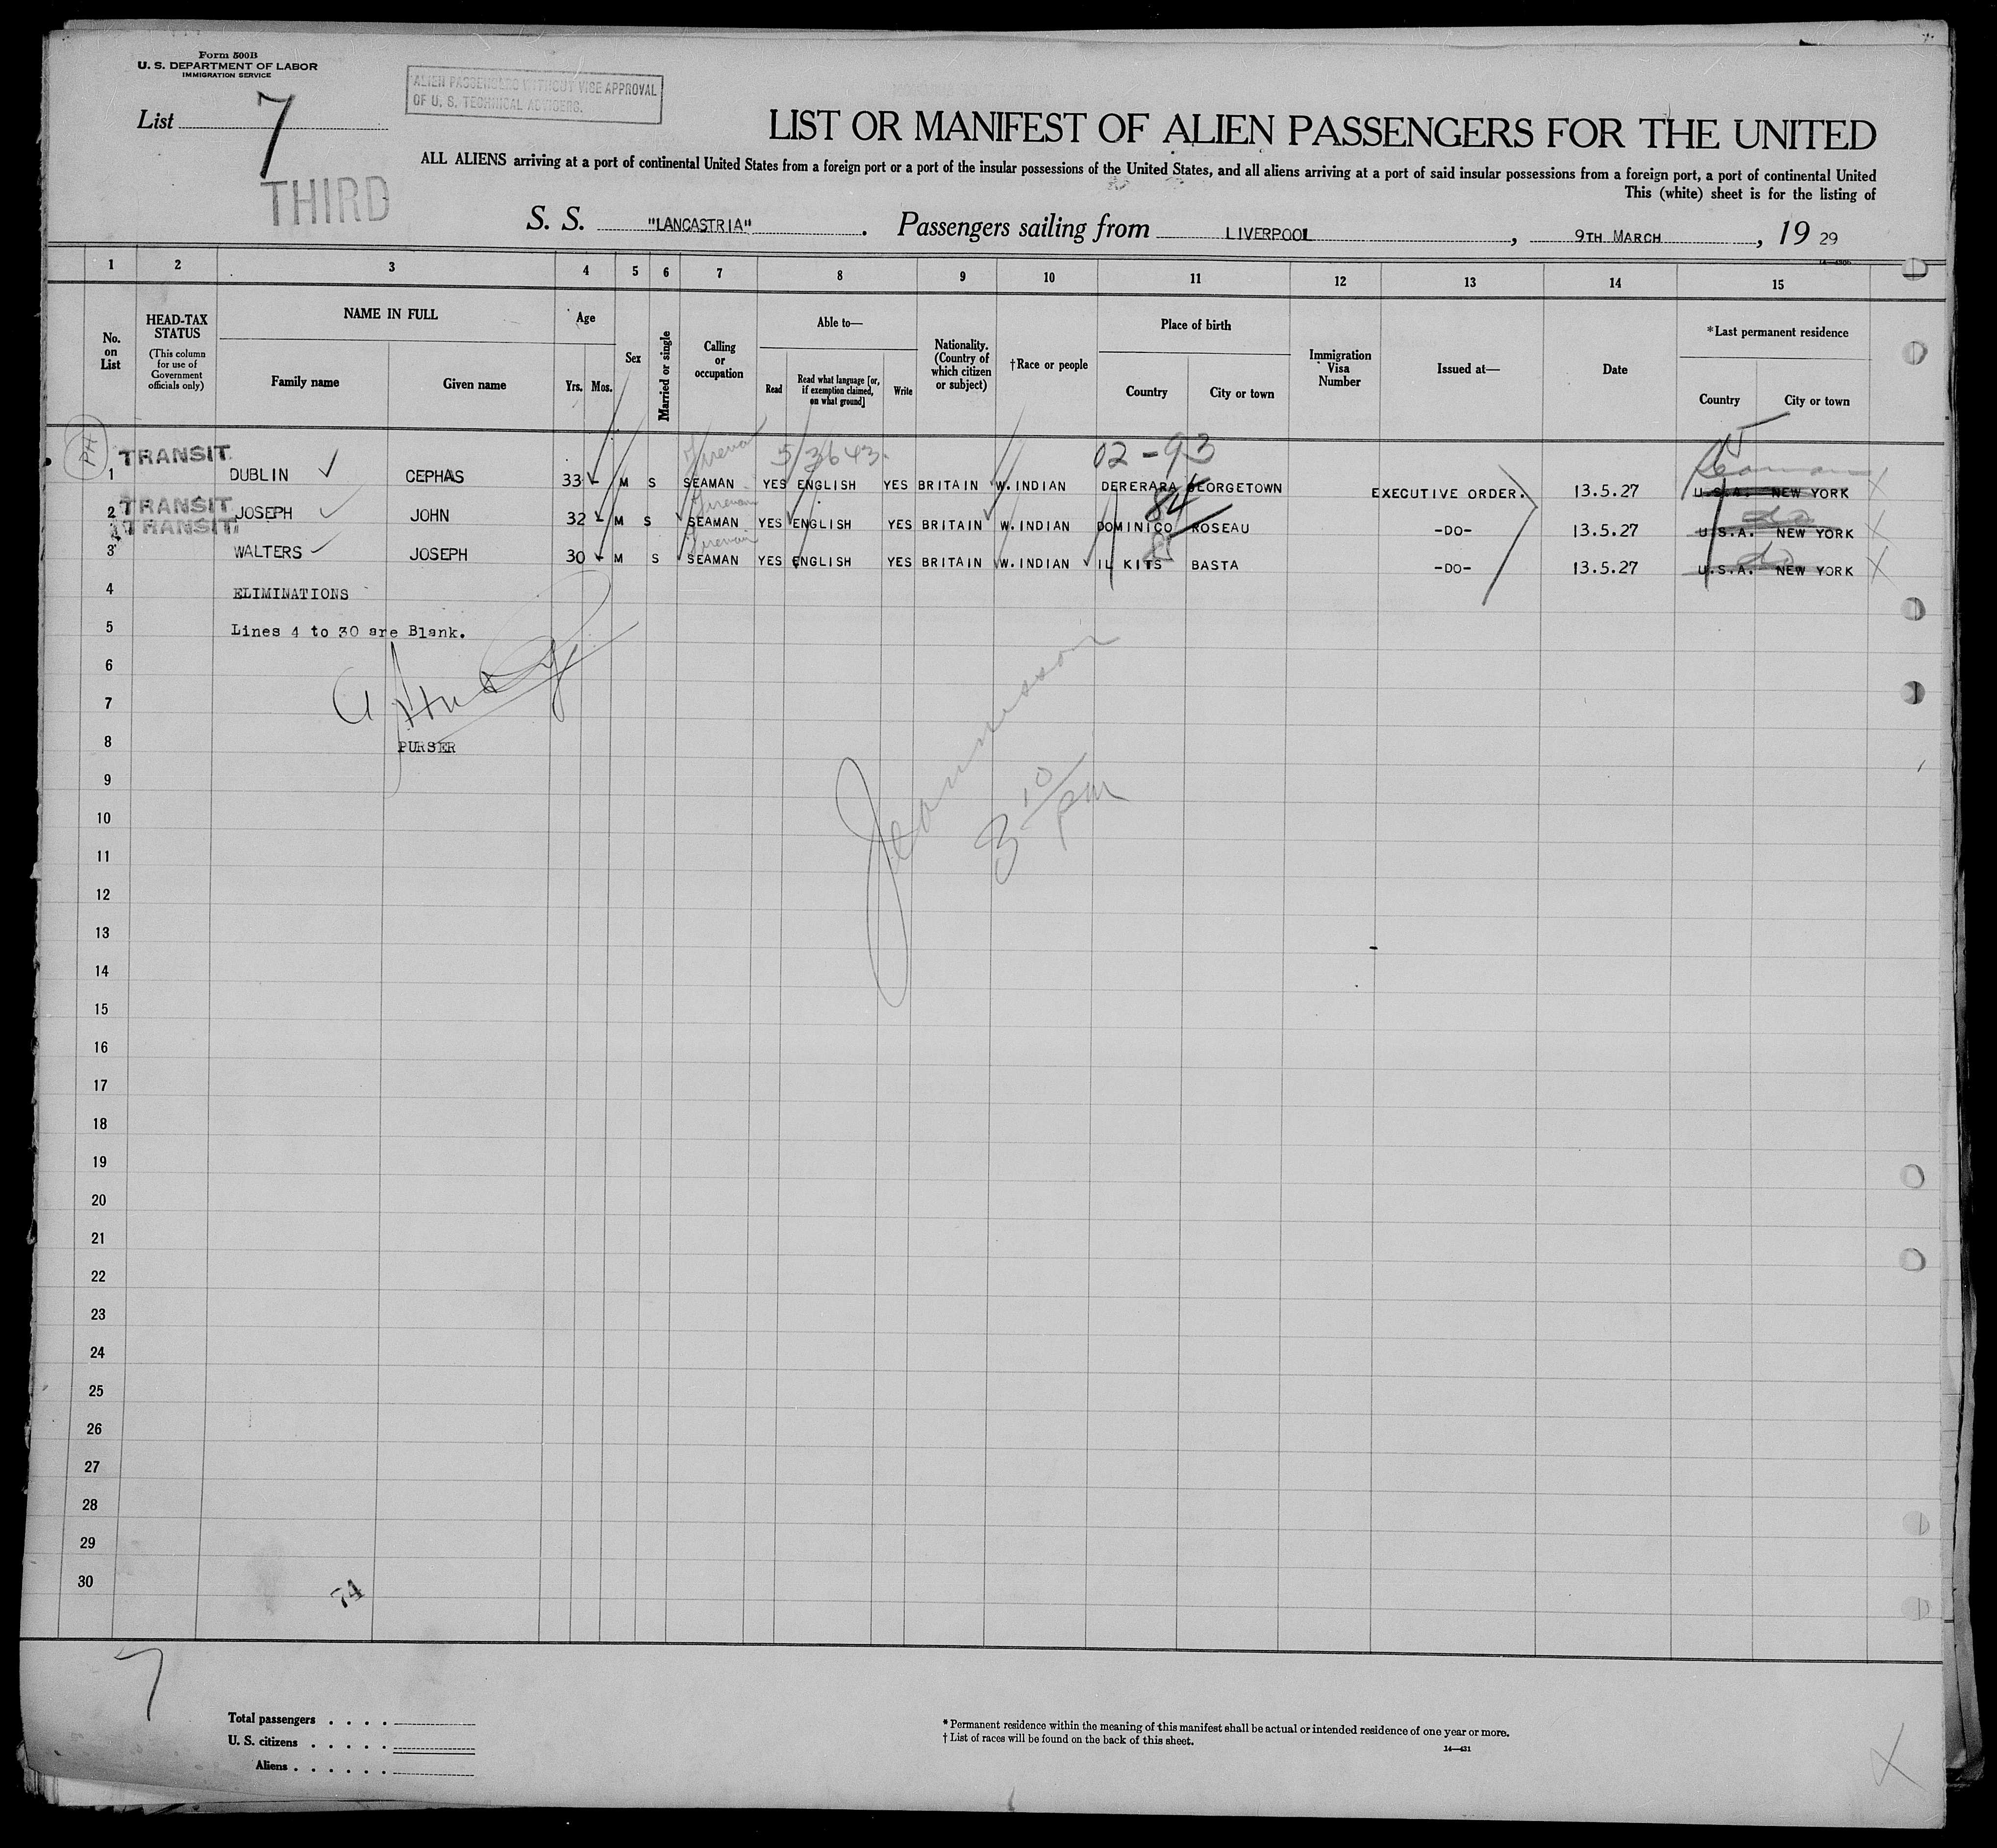 Form 500B
U. S. DEPARTMENT OF LABOR
IMMIGRATION SERVICE
ALIEN PASSENGERS WITHOUT VISE APPROVAL
OF U. S. TECHNICAL ADVISERS.
List 7
THIRD
LIST OR MANIFEST OF ALIEN PASSENGERS FOR THE UNITED
ALL ALIENS arriving at a port of continental United States from a foreign port or a port of the insular possessions of the United States, and all aliens arriving at a port of said insular possessions from a foreign port, a port of continental United
This (white) sheet is for the listing of
S. S. "LANCASTRIA". Passengers sailing from LIVERPOOL, 9TH MARCH, 19 29
1 2 3 4 5 6 7 8 9 10 11 12 13 14 15
No. on List
HEAD-TAX STATUS
(This column for use of Government officials only)
NAME IN FULL
Family name Given name
Age
Yrs. Mos.
Sex
Married or single
Calling or occupation
Able to—
Read Read what language [or, if exemption claimed, on what ground] Write
Nationality. (Country of which citizen or subject)
†Race or people
Place of birth
Country City or town
Immigration Visa Number
Issued at—
Date
*Last permanent residence
Country City or town
PH
TRANSIT Fireman 5/3643 02-93 Seaman
1 DUBLIN CEPHAS 33 - M S SEAMAN YES ENGLISH YES BRITAIN W. INDIAN DERERARA GEORGETOWN EXECUTIVE ORDER. 13.5.27 U.S.A. NEW YORK
TRANSIT Fireman 84 do
2 JOSEPH JOHN 32 - M S SEAMAN YES ENGLISH YES BRITAIN W. INDIAN DOMINICO ROSEAU -DO- 13.5.27 U.S.A. NEW YORK
TRANSIT Fireman do
3 WALTERS JOSEPH 30 - M S SEAMAN YES ENGLISH YES BRITAIN W. INDIAN IL KITS BASTA -DO- 13.5.27 U.S.A. NEW YORK
4 ELIMINATIONS
5 Lines 4 to 30 are Blank.
6
7
8 PURSER
3 10/PM
9
10
11
12
13
14
15
16
17
18
19
20
21
22
23
24
25
26
27
28
29
30
74
7
Total passengers . . . .
U. S. citizens . . . . .
Aliens . . . . . .
* Permanent residence within the meaning of this manifest shall be actual or intended residence of one year or more.
† List of races will be found on the back of this sheet.
14—431